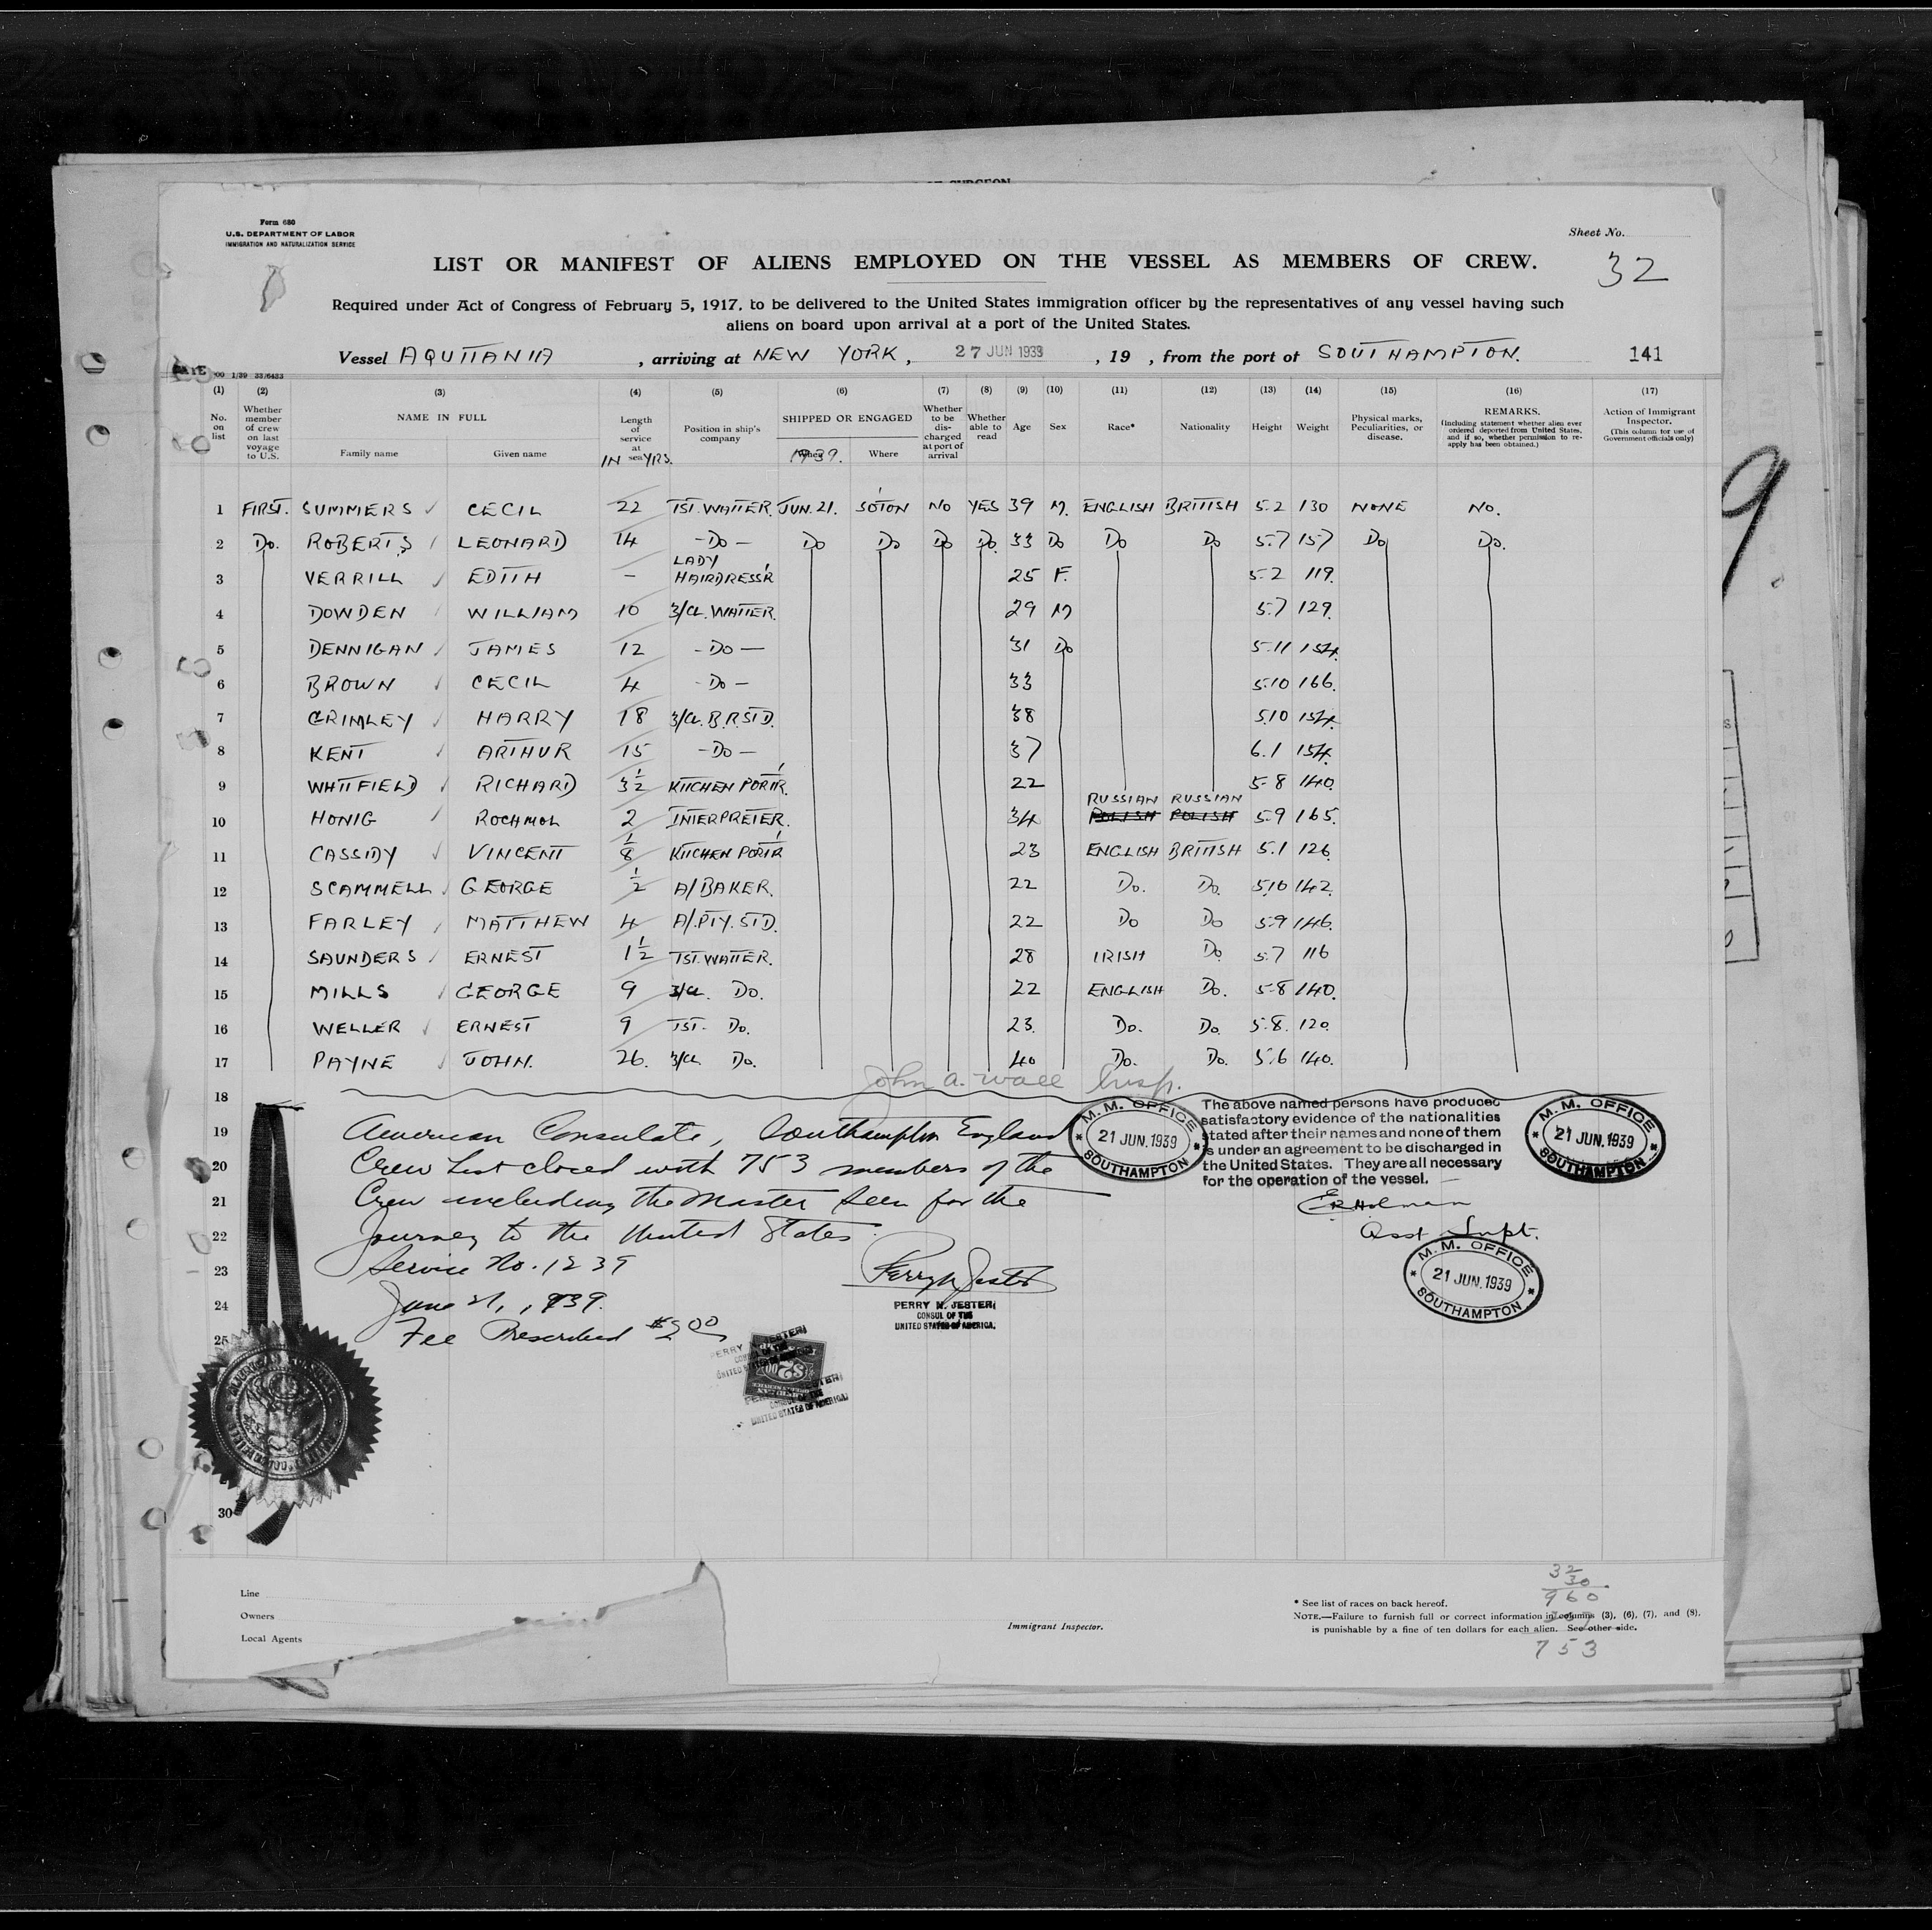 Form 680
U.S. DEPARTMENT OF LABOR
IMMIGRATION AND NATURALIZATION SERVICE
Sheet No.
32
LIST OR MANIFEST OF ALIENS EMPLOYED ON THE VESSEL AS MEMBERS OF CREW.
Required under Act of Congress of February 5, 1917, to be delivered to the United States immigration officer by the representatives of any vessel having such
aliens on board upon arrival at a port of the United States.
Vessel AQUITANIA, arriving at NEW YORK, 27 JUN 1939, 19 , from the port of SOUTHAMPTON. 141
(1) (2) (3) (4) (5) (6) (7) (8) (9) (10) (11) (12) (13) (14) (15) (16) (17)
No. on list
Whether member of crew on last voyage to U.S.
NAME IN FULL
Family name Given name
Length of service at sea IN YRS.
Position in ship's company
SHIPPED OR ENGAGED
When 1939. Where
Whether to be discharged at port of arrival
Whether able to read
Age
Sex
Race*
Nationality
Height
Weight
Physical marks, Peculiarities, or disease.
REMARKS.
(Including statement whether alien ever ordered deported from United States, and if so, whether permission to reapply has been obtained.)
Action of Immigrant Inspector.
(This column for use of Government officials only)
1 FIRST. SUMMERS CECIL 22 TST. WAITER. JUN. 21. S'OTON NO YES 39 M. ENGLISH BRITISH 5.2 130 NONE NO.
2 Do. ROBERTS LEONARD 14 -Do- Do Do Do Do 33 Do Do Do 5.7 157 Do Do.
3 VERRILL EDITH - LADY HAIRDRESS'R 25 F. 5.2 119.
4 DOWDEN WILLIAM 10 3/CL. WAITER. 29 M 5.7 129.
5 DENNIGAN JAMES 12 -Do- 31 Do 5.11 154.
6 BROWN CECIL 4 -Do- 33 5.10 166.
7 GRIMLEY HARRY 18 3/CL. B.R.STD. 38 5.10 154.
8 KENT ARTHUR 15 -Do- 37 6.1 154.
9 WHITFIELD RICHARD 3½ KITCHEN PORT'R. 22 5.8 140.
RUSSIAN RUSSIAN
10 HONIG ROCHMOL 2 INTERPRETER. 34 POLISH POLISH 5.9 165.
11 CASSIDY VINCENT 1/8 KITCHEN PORT'R 23 ENGLISH BRITISH 5.1 126.
12 SCAMMELL GEORGE ½ A/BAKER. 22 Do. Do. 5.10 142.
13 FARLEY MATTHEW 4 A/.PTY. STD. 22 Do Do 5.9 146.
14 SAUNDERS ERNEST 1½ TST. WAITER. 28 IRISH Do 5.7 116
15 MILLS GEORGE 9 3/CL. Do. 22 ENGLISH Do. 5.8 140.
16 WELLER ERNEST 9 TST. Do. 23. Do. Do. 5.8. 120.
17 PAYNE JOHN. 26. 3/CL. Do. 40 Do. Do. 5.6 140.
John A. Wall Insp.
18
19
20
21
22
23
24
25
30
American Consulate, Southampton England
Crew List closed with 753 members of the
Crew including the Master seen for the
Journey to the United States.
Service No. 1239
June 21, 1939.
Fee Prescribed $2.00
Perry N Jester
PERRY N. JESTER
CONSUL OF THE
UNITED STATES OF AMERICA.
PERRY N. JESTER
CONSUL OF THE
UNITED STATES OF AMERICA
M. M. OFFICE
21 JUN. 1939
SOUTHAMPTON
The above named persons have produced
satisfactory evidence of the nationalities
stated after their names and none of them
is under an agreement to be discharged in
the United States. They are all necessary
for the operation of the vessel.
M. M. OFFICE
21 JUN. 1939
SOUTHAMPTON
E R Holman
Asst Supt.
M. M. OFFICE
21 JUN. 1939
SOUTHAMPTON
Line
Owners
Local Agents
Immigrant Inspector.
* See list of races on back hereof.
NOTE.—Failure to furnish full or correct information in columns (3), (6), (7), and (8),
is punishable by a fine of ten dollars for each alien. See other side.
32
30
960
753
9.